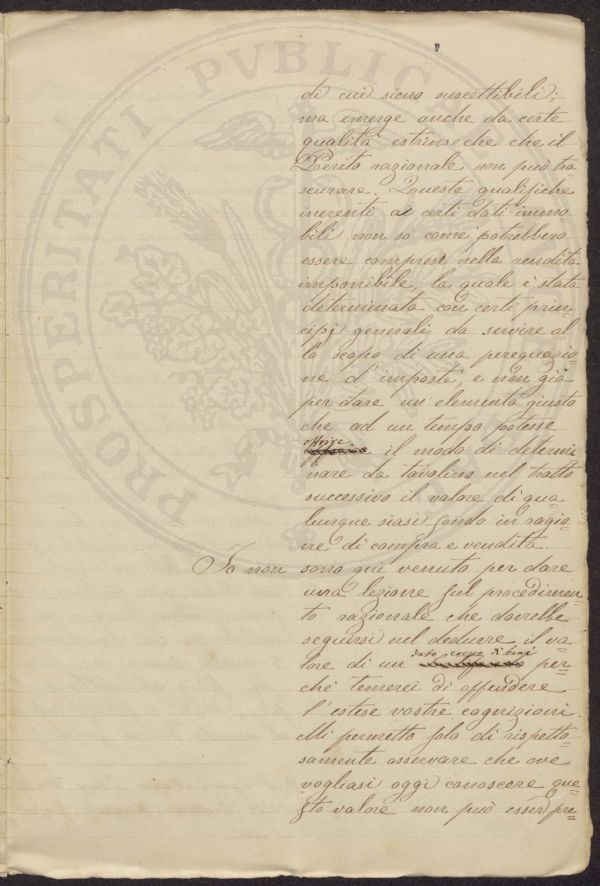 PROSPERITATI PVBLICAE
di cui sieno suscettibili;
ma emerge anche da certe
qualità estrinseche che il
Perito razionale non può tra
scurare. Queste qualifiche
inerenti a certi dati immo=
bili non so come potrebbero
essere comprese nella rendita
imponibile, la quale è stata
determinata con certi prin=
cipj generali da servire al=
lo scopo di una perequazio=
ne d'imposte, e non già
per dare un elemento giusto
che ad un tempo potesse
offrire
il modo di determi
nare da tavolino nel tratto
successivo il valore di qua
lunque siasi fondo in ragio=
ne di compra e vendita.
Io non sono qui venuto per dare
una lezione sul procedimen=
to razionale che dovrebbe
seguirsi nel dedurre il va=
dato corpo di beni
lore di un per=
chè temerei di offendere
l'estese vostre cognizioni.
Mi permetto solo di rispetto=
samente osservare che ove
vogliasi oggi conoscere que=
sto valore non può esser pre=